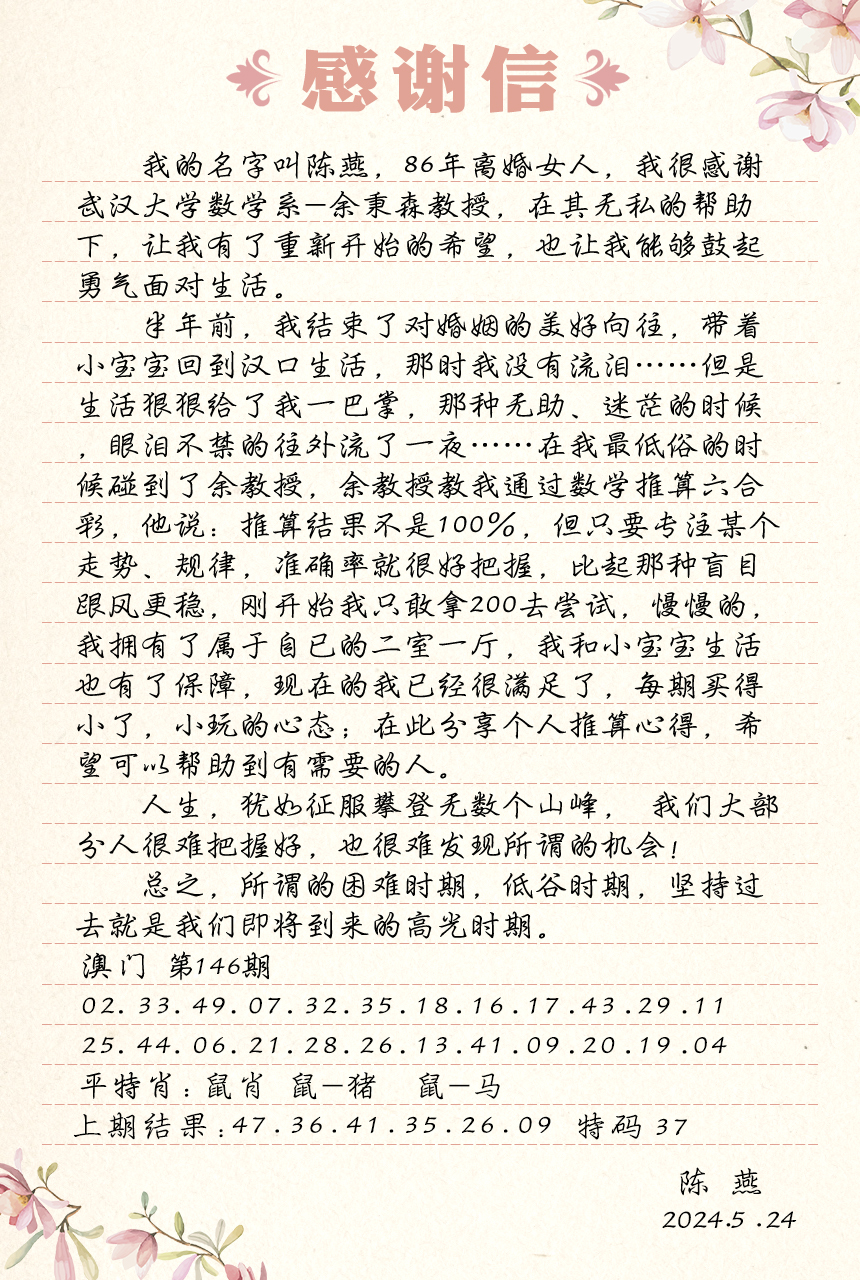 感谢信
我的名字叫陈燕，86年离婚女人，我很感谢
武汉大学数学系—余秉森教授，在其无私的帮助
下，让我有了重新开始的希望，也让我能够鼓起
勇气面对生活。
半年前，我结束了对婚姻的美好向往，带着
小宝宝回到汉口生活，那时我没有流泪……但是
生活狠狠给了我一巴掌，那种无助、迷茫的时候
，眼泪不禁的往外流了一夜……在我最低俗的时
候碰到了余教授，余教授教我通过数学推算六合
彩，他说：推算结果不是100%，但只要专注某个
走势、规律，准确率就很好把握，比起那种盲目
跟风更稳，刚开始我只敢拿200去尝试，慢慢的，
我拥有了属于自已的二室一厅，我和小宝宝生活
也有了保障，现在的我已经很满足了，每期买得
小了，小玩的心态；在此分享个人推算心得，希
望可以帮助到有需要的人。
人生，犹如征服攀登无数个山峰， 我们大部
分人很难把握好，也很难发现所谓的机会！
总之，所谓的困难时期，低谷时期，坚持过
去就是我们即将到来的高光时期。
澳门 第146期
02.33.49.07.32.35.18.16.17.43.29.11
25.44.06.21.28.26.13.41.09.20.19.04
平特肖：鼠肖 鼠—猪 鼠—马
上期结果：47.36.41.35.26.09 特码 37
陈 燕
2024.5.24